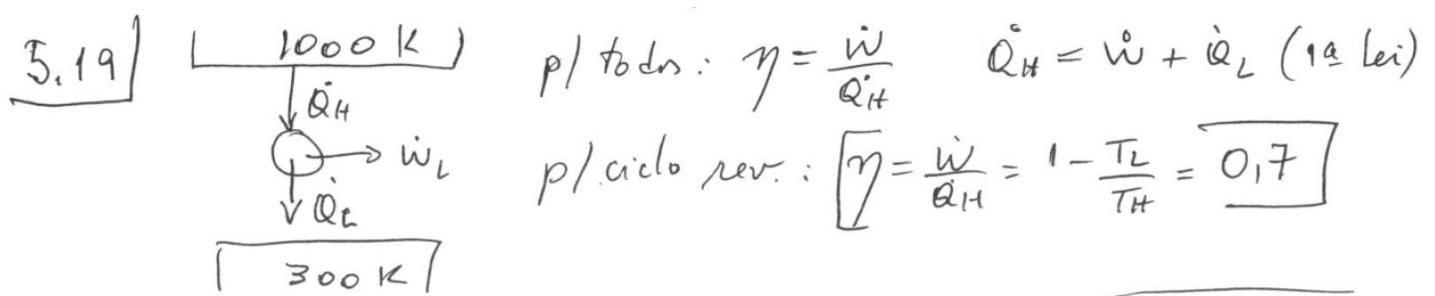 5.19
1000 K
Q̇H
ẆL
Q̇L
300 K
p/ todos: η = Ẇ/Q̇H   Q̇H = Ẇ + Q̇L (1ª lei)
p/ ciclo rev.: η = Ẇ/Q̇H = 1 - TL/TH = 0,7